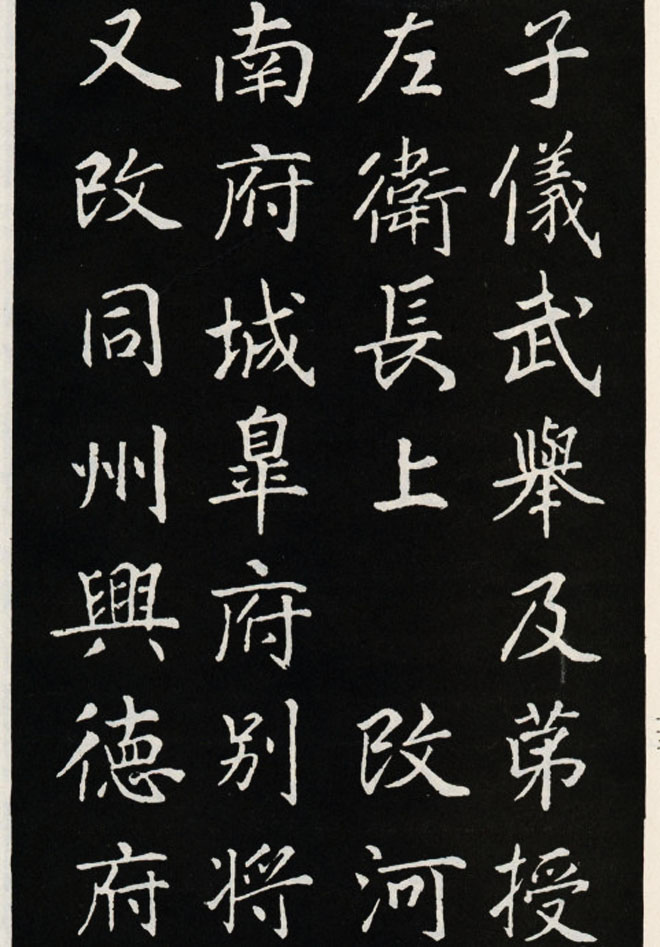 子儀武舉及苐授
左衛長上　改河
南府城皐府别将
又改同州興徳府